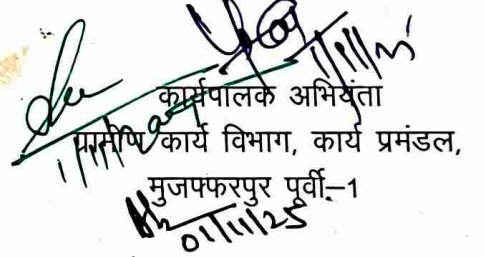 1/11/25
कार्यपालक अभियंता
ग्रामीण कार्य विभाग, कार्य प्रमंडल,
मुजफ्फरपुर पूर्वी–1
01/11/25